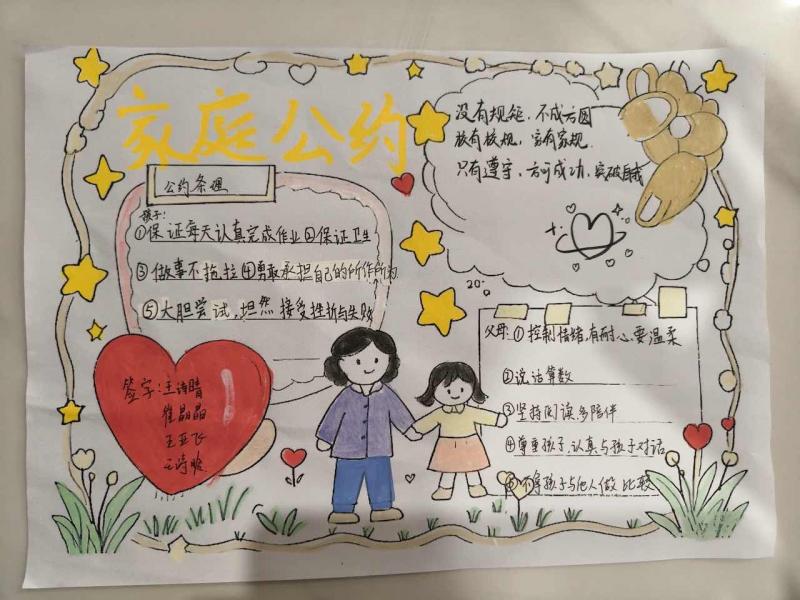 家庭公约
没有规矩，不成方圆
族有族规，家有家规.
只有遵守，方可成功，突破自我
公约条理
孩子：
①保证每天认真完成作业②保证卫生
③做事不拖拉④勇敢承担自己的所作所为
⑤大胆尝试,坦然接受挫折与失败
签字：王诗晴
崔晶晶
王亚飞
王诗
20
父母：①控制情绪,有耐心,要温柔
②说话算数
③坚持阅读,多陪伴
④尊重孩子,认真与孩子对话
⑤不拿孩子与他人做比较